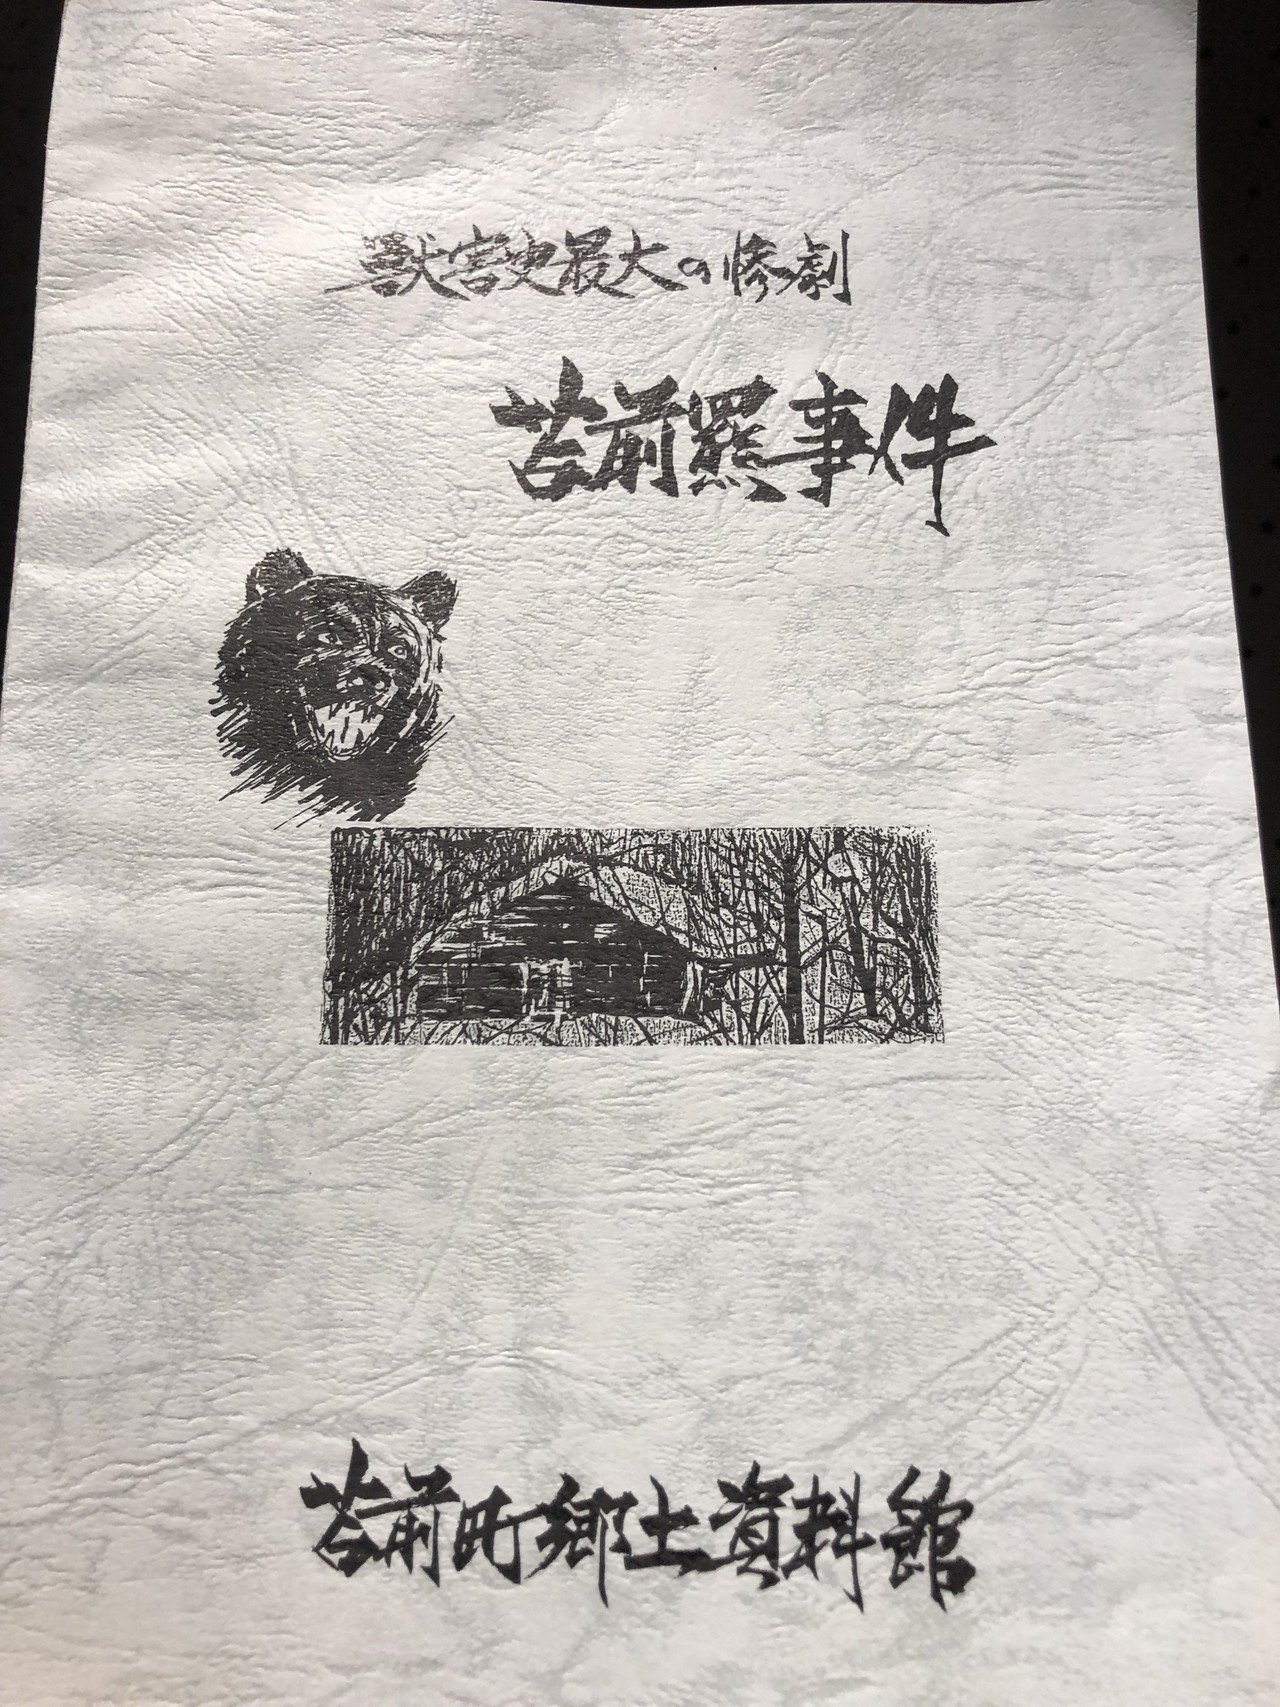 獣害史最大の惨劇
苫前羆事件
苫前町郷土資料館